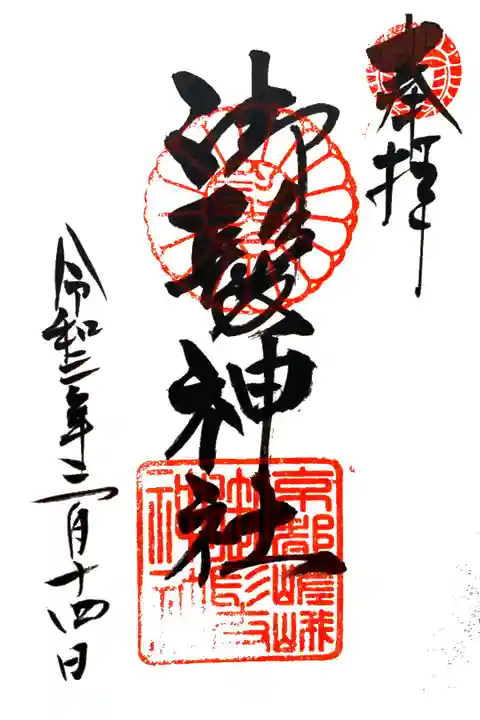 奉拝
御髪神社
京都嵯峨
御髪
神社
令和三年三月十四日